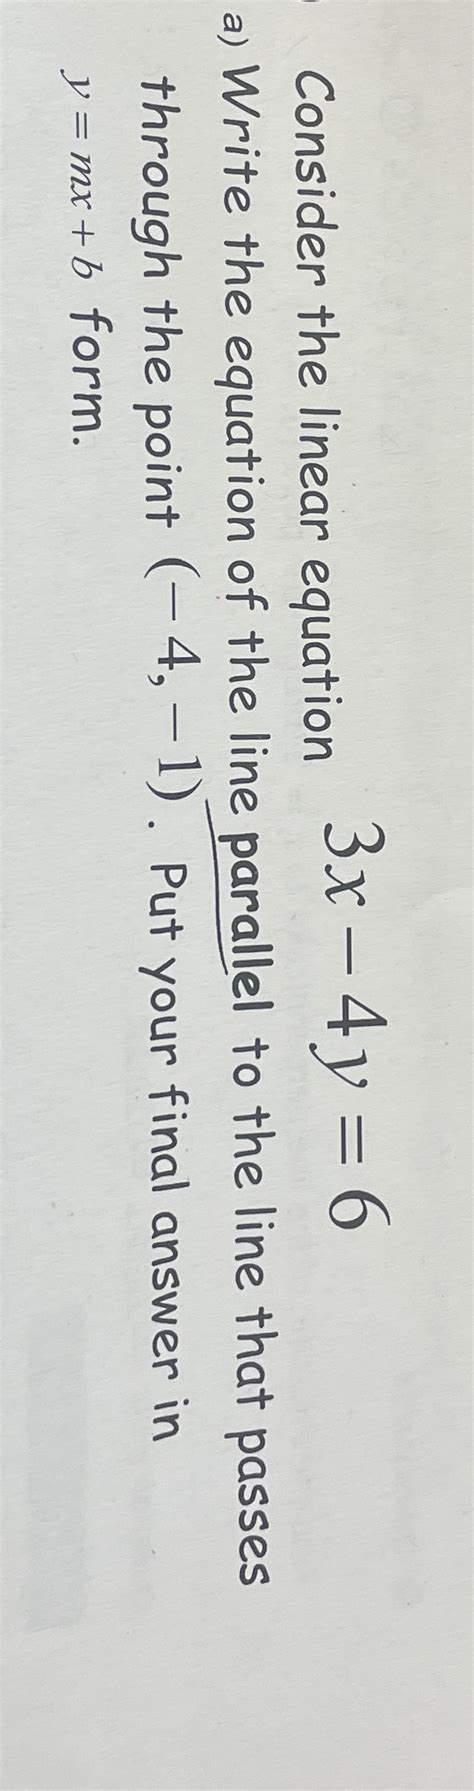 Consider the linear equation 3x − 4y = 6
a) Write the equation of the line parallel to the line that passes
through the point (−4, −1). Put your final answer in
y = mx + b form.